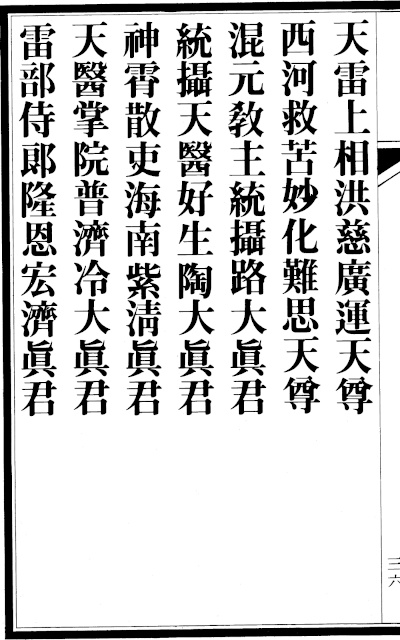 天雷上相洪慈廣運天尊
西河救苦妙化難思天尊
混元教主統攝路大眞君
統攝天醫好生陶大眞君
神霄散吏海南紫清眞君
天醫掌院普濟冷大眞君
雷部侍郎隆恩宏濟眞君
三六